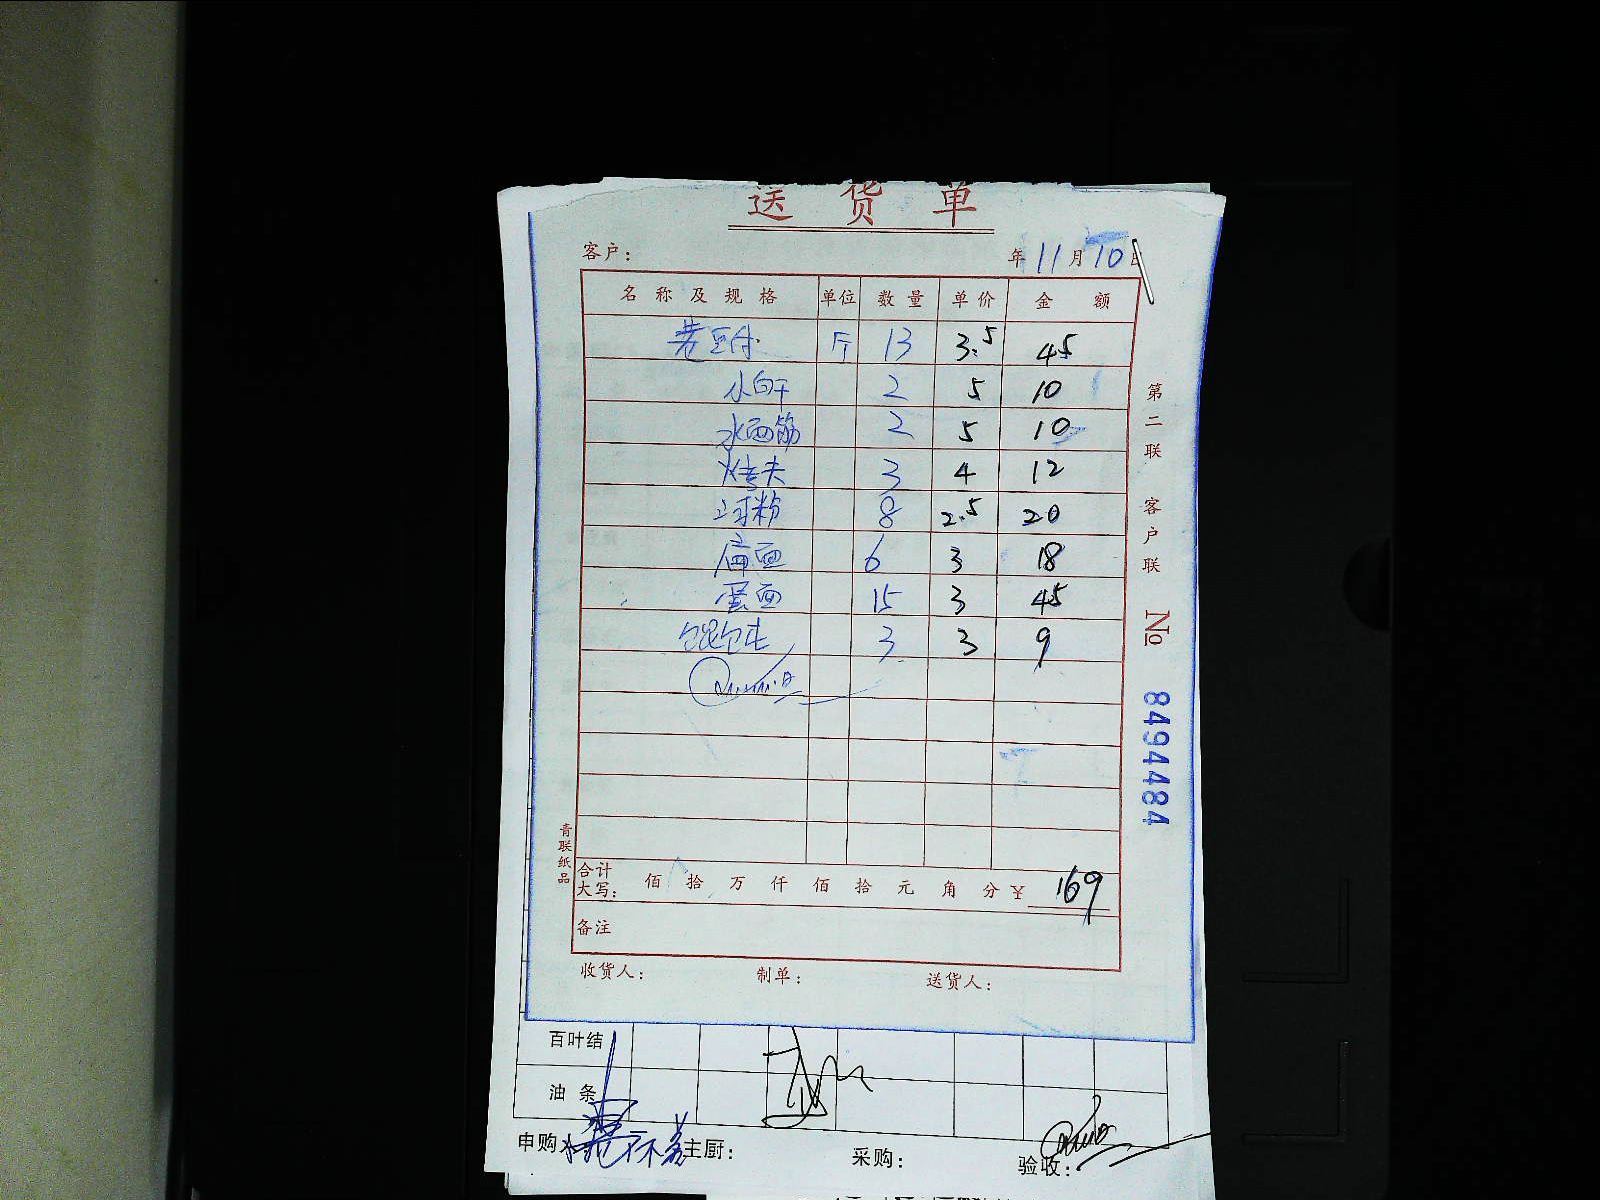 送货单
客户： 年11月10日
名称及规格 单位 数量 单价 金额
老豆付 斤 13 3.5 45
小白干 2 5 10
水面筋 2 5 10
烤夫 3 4 12
8 2.5 20
扁面 6 3 18
蛋面 15 3 45
馄饨 3 3 9
合计大写： 佰 拾 万 仟 佰 拾 元 角 分 ￥ 169
备注
收货人： 制单： 送货人：
第二联 客户联 No 8494484
青联纸品
百叶结
油条
申购人 主厨： 采购： 验收：